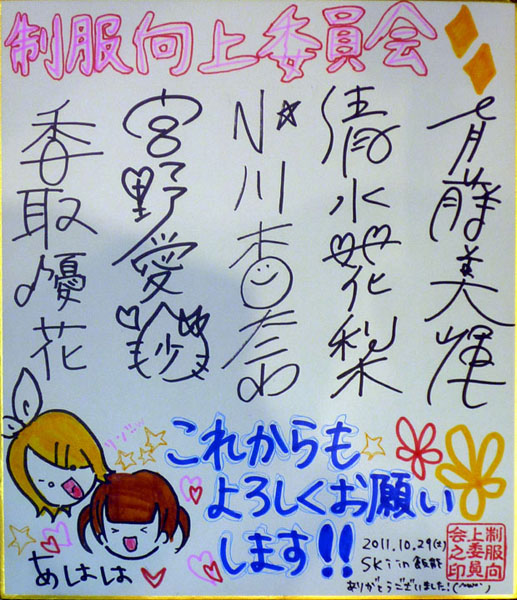 制服向上委員会
斉藤美輝
清水花梨
川杏奈
宮野愛
香取優花
これからも
よろしくお願い
します!!
あはは
2011.10.29(土)
SKi in 飯能
ありがとうございました!
制服向
上委員
会之印